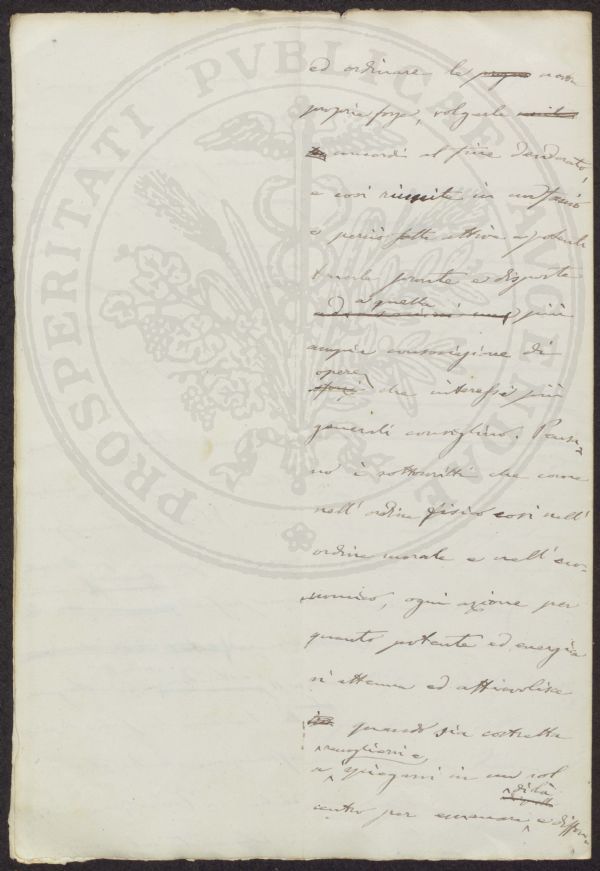 PROSPERITATI PVBLICAE AVGENDAE
ed ordinare le nostre
proprie forze, volgerle
concordi al fine desiderato,
e così riunite in un fascio
e perciò fatte attive e potenti
tenerle pronte e disposte
a quella
più
ampia convergione di
opere
che interessi più
generali consigliino. Pensa-
no i sottoscritti che come
nell' ordine fisico così nell'
ordine morale e nell' eco-
nomico, ogni azione per
quanto potente ed energica
si attenua ed affievolisce
quando sia costretta
raccogliersi e
a spiegarsi in un sol
di là
centro per emanare e